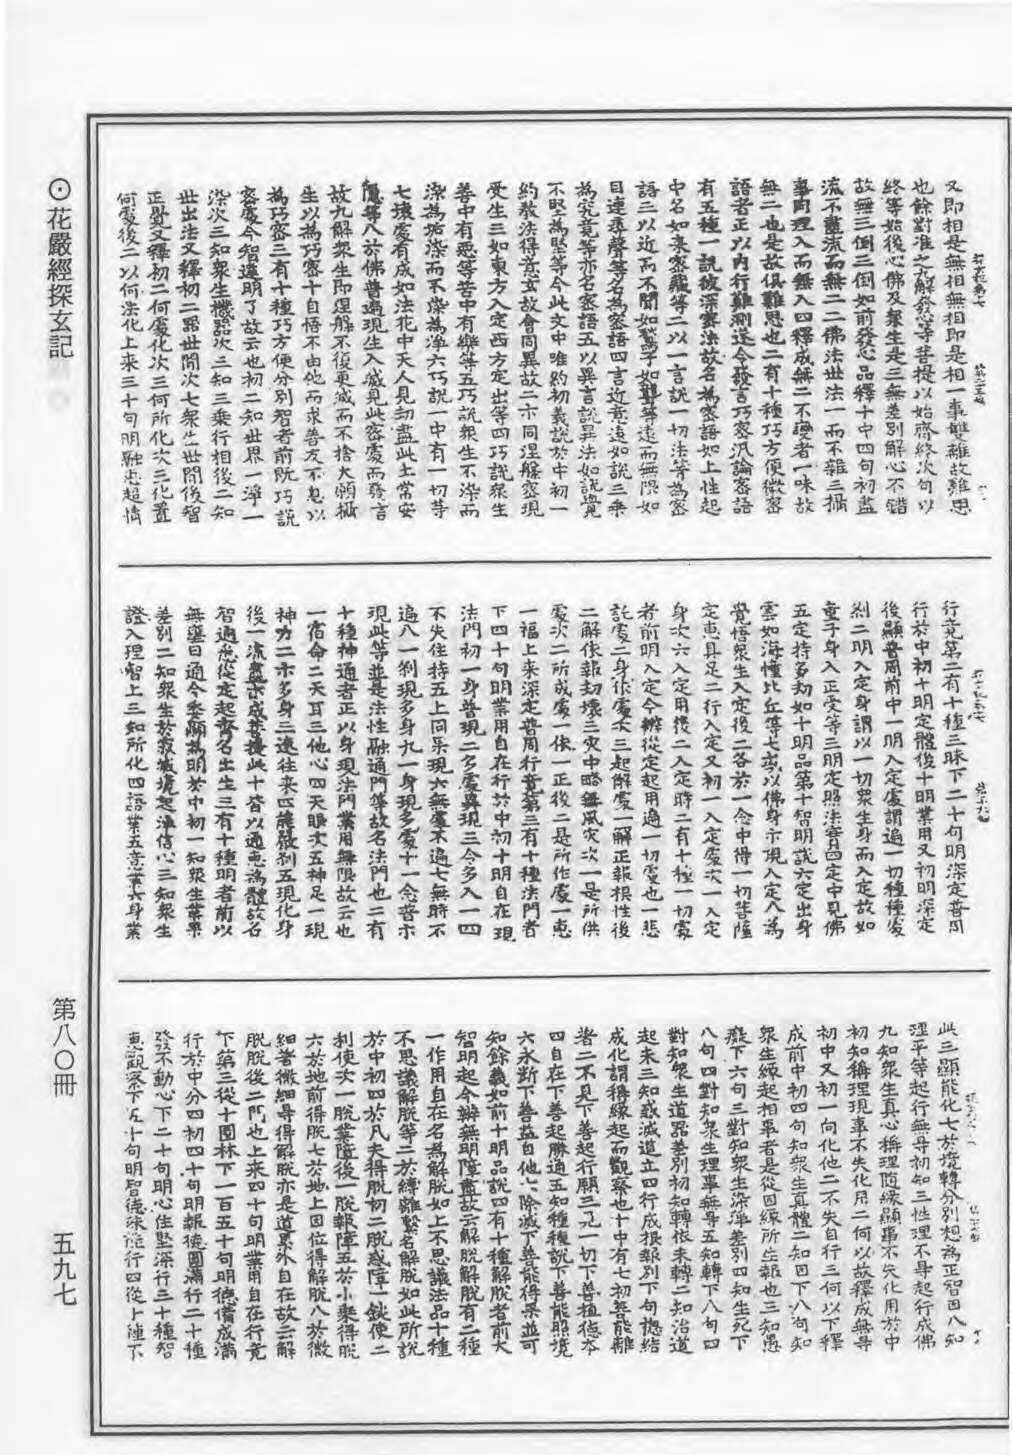 又即相是無相無相即是相一事雙離故難思
也餘對准之九解發心等菩提以始齊終次句以
終等始後心佛及衆生是三無差別解心不錯
故無三倒三倒如前發心品釋十中四句初盡
流不盡流而無二二佛法世法一而不雜三攝
事同理入而無入四釋成無二不變者一味故
無二也是故俱難思也二有十種巧方便微密
語者正以內行難測遂令發言巧密汎論密語
有五種一說彼深密法故名為密語如上性起
中名如來密藏等二以一言說一切法等為密
語三以近而不聞如鶖子如聾等遠而無隔如
目連尋聲等名為密語四言近意遠如說三乘
為究竟等亦名密語五以異言說異法如說覺
不堅為堅等今此文中唯約初義說於中初一
約教法得意玄故會同異故二亦同涅槃密現
受生三如東方入定西方定出等四巧說衆生
善中有惡等苦中有樂等五巧說衆生不染而
染為垢染而不染為淨六巧說一中有一切等
七壞處有成如法花中天人見劫盡此土常安
隱等八於佛普遍現生入滅見此密處而發言
故九解衆生即涅槃不復更滅而不捨大願攝
生以為巧密十自悟不由他而求善友不息以
為巧密三有十種巧方便分別智者前既巧說
密處今智還明了故云也初二知世界一淨一
染次三知衆生機器次三知三乘行相後二知
世出法又釋初二器世間次七衆生世間後智
正覺又釋初二何處化次三何所化次三化置
何處後二以何法化上來三十句明融忠超情
行竟第二有十種三昧下二十句明深定普周
行於中初十明定體後十明業用又初明深定
後顯普周前中一明入定處謂遍一切種種處
剎二明入定身謂以一切衆生身而入定故如
童子身入正受等三明定照法實四定中見佛
五定持多劫如十明品第十智明說六定出身
雲如海幢比丘等七亦以佛身示現入定八為
覺悟衆生入定後二各於一念中得一切菩薩
定惠具足二行入定又初一入定處次一入定
身次六入定用後二入定時二有十種一切處
者前明入定今辨從定起用遍一切處也一悲
託處二身作處次三起解處一解正報根性後
二解依報劫壞三灾中略無風灾次一是所供
處次二所成處一依一正後二是所作處一惠
一福上來深定普周行竟第三有十種法門者
下四十句明業用自在行於中初十明自在現
法門初一身普現二多處異現三今多入一四
不失住持五上同果現六無處不遍七無時不
遍八一剎現多身九一身現多處十一念普示
現此等並是法性融通門等故名法門也二有
十種神通者正以身現法門業用無限故云也
一宿命二天耳三他心四天眼次五神足一現
神力二亦多身三速往來四能嚴剎五現化身
後一流盡亦成菩提此十皆以通惠為體故名
智通悉從定起齊名出生三有十種明者前以
無壅曰通今委顯為明於中初一知衆生業果
差別二知衆生於寂滅境起淨信心三知衆生
證入理智上三知所化四語業五意業六身業
此三顯能化七於境轉分別想為正智因八知
理平等起行無㝵初知三性理不㝵起行成佛
九知衆生真心稱理隨緣顯事不失化用於中
初知稱理現事不失化用二何以故釋成無㝵
初中又初一向化他二不失自行三何以下釋
成前中初四句知衆生真體二知因下八句知
衆生緣起相事者是從因緣所生報也三知愚
癡下六句三對知衆生染淨差別四知生死下
八句四對知衆生理事無㝵五知轉下八句四
對知衆生道器差別初知轉依未轉二知治道
起未三知惑滅道立四行成損報別下句總結
成化謂得緣起而觀察也十中有七初善能離
者二不見下善起行願三見一切下善植德本
四自在下善起勝通五知種種說下善能照境
六永斷下善益自他七除滅下善能得果並可
知餘義如前十明品說四有十種解脫者前大
智明起今辨無明障盡故云解脫解脫有二種
一作用自在名為解脫如上不思議法品十種
不思議解脫等二於縛離繫名解脫如此所說
於中初四於凡夫得脫初二脫惑障一鈍使二
利使次一脫業障後一脫報障五於小乘得脫
六於地前得脫七於地上因位得解脫八於微
細著微細㝵得解脫亦是道累外自在故云解
脫脫後二門也上來四十句明業用自在行竟
下第三從十園林下一百五十句明德備成滿
行於中分四初四十句明報德圓滿行二十種
發不動心下二十句明心住堅深行三十種智
惠觀察下五十句明智德深廣行四從十種下
⊙花嚴經探玄記
第八〇冊
五九七